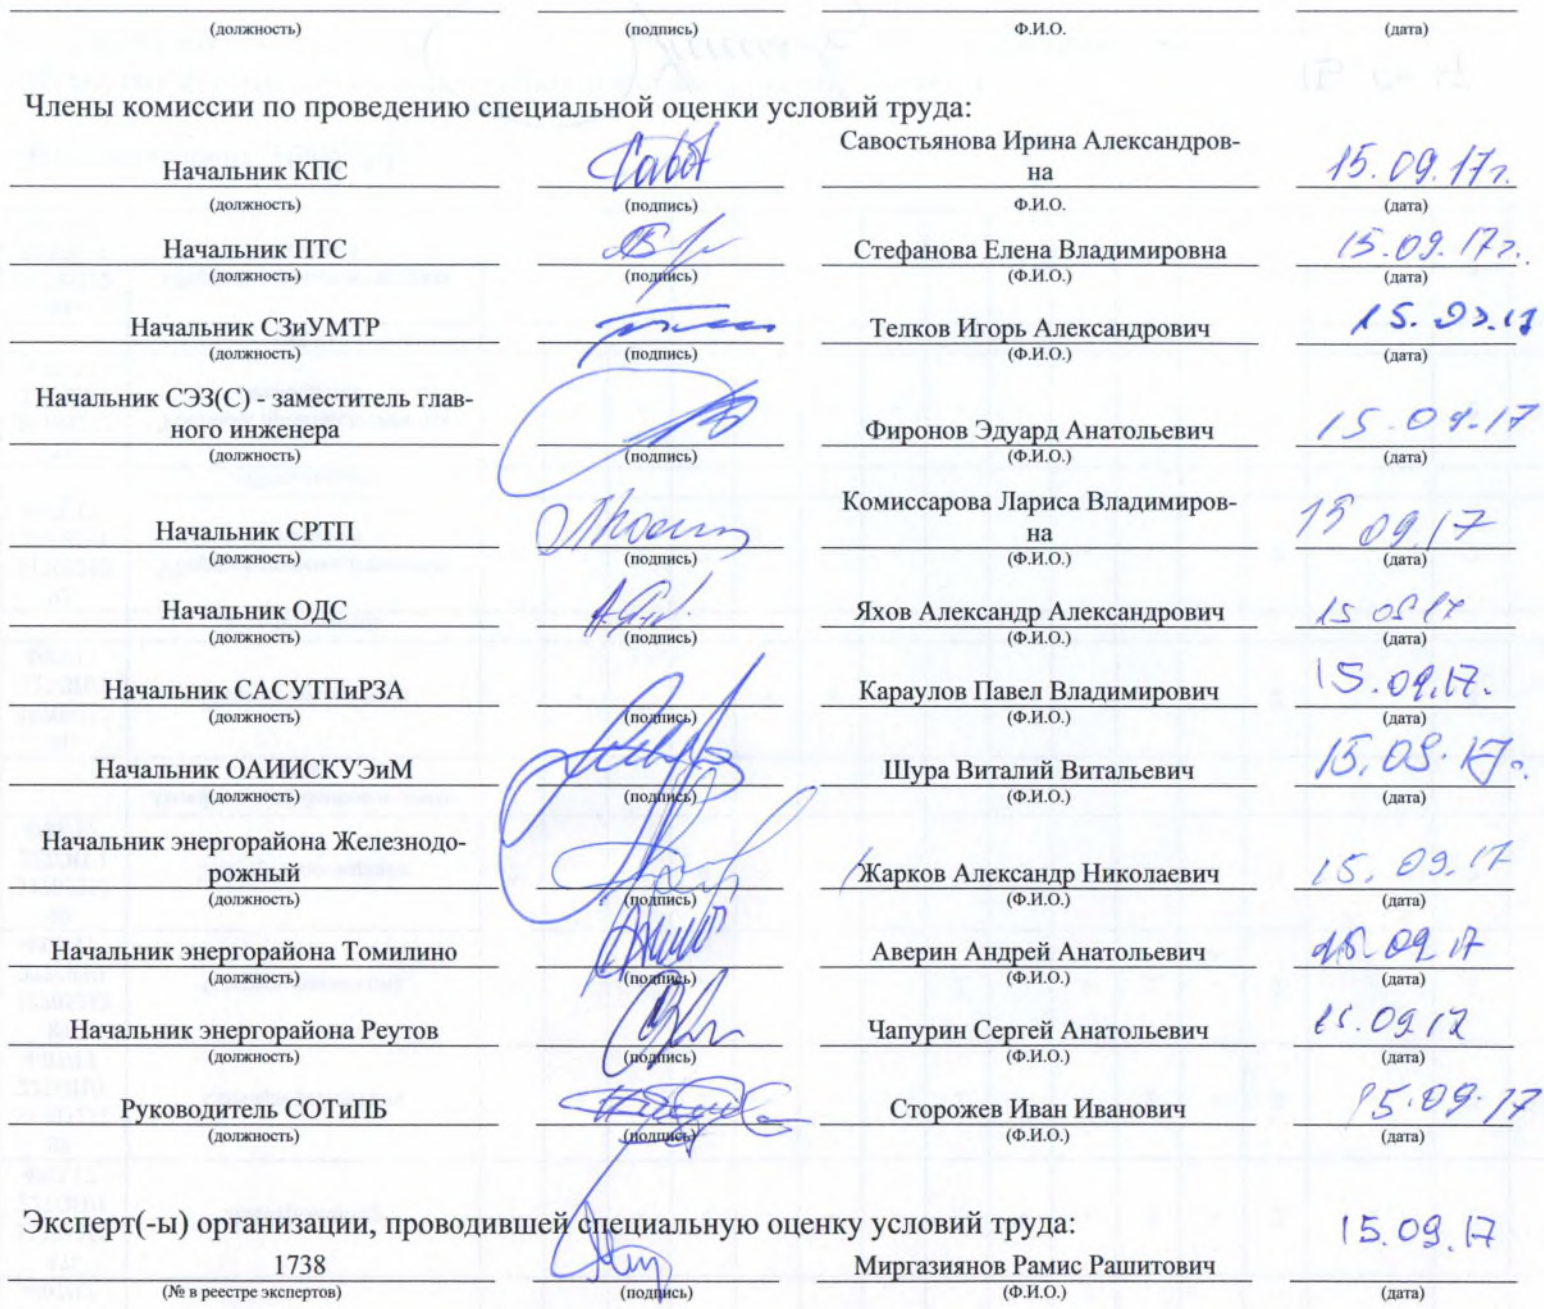 (должность) (подпись) Ф.И.О. (дата)
Члены комиссии по проведению специальной оценки условий труда:
Савостьянова Ирина Александров-
Начальник КПС на 15.09.17г.
(должность) (подпись) Ф.И.О. (дата)
Начальник ПТС Стефанова Елена Владимировна 15.09.17г.
(должность) (подпись) (Ф.И.О.) (дата)
Начальник СЗиУМТР Телков Игорь Александрович 15.09.17
(должность) (подпись) (Ф.И.О.) (дата)
Начальник СЭЗ(С) - заместитель глав-
ного инженера Фиронов Эдуард Анатольевич 15.09.17
(должность) (подпись) (Ф.И.О.) (дата)
Комиссарова Лариса Владимиров-
Начальник СРТП на 15 09.17
(должность) (подпись) (Ф.И.О.) (дата)
Начальник ОДС Яхов Александр Александрович 15 09 17
(должность) (подпись) (Ф.И.О.) (дата)
Начальник САСУТПиРЗА Караулов Павел Владимирович 15.09.17.
(должность) (подпись) (Ф.И.О.) (дата)
Начальник ОАИИСКУЭиМ Шура Виталий Витальевич 15.09.17г.
(должность) (подпись) (Ф.И.О.) (дата)
Начальник энергорайона Железнодо-
рожный Жарков Александр Николаевич 15.09.17
(должность) (подпись) (Ф.И.О.) (дата)
Начальник энергорайона Томилино Аверин Андрей Анатольевич 15.09.17
(должность) (подпись) (Ф.И.О.) (дата)
Начальник энергорайона Реутов Чапурин Сергей Анатольевич 15.09.17
(должность) (подпись) (Ф.И.О.) (дата)
Руководитель СОТиПБ Сторожев Иван Иванович 15.09.17
(должность) (подпись) (Ф.И.О.) (дата)
Эксперт(-ы) организации, проводившей специальную оценку условий труда: 15.09.17
1738 Миргазиянов Рамис Рашитович
(№ в реестре экспертов) (подпись) (Ф.И.О.) (дата)